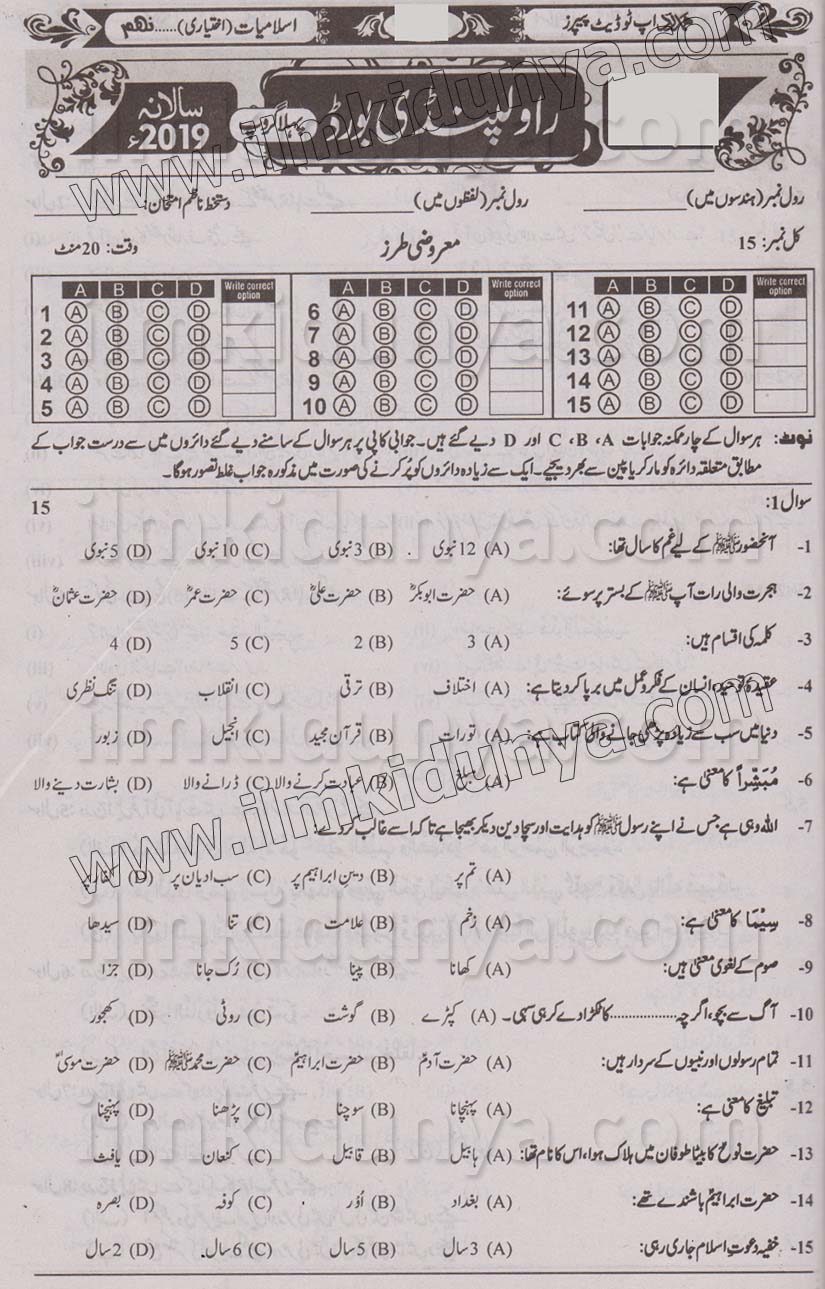 اپ ٹو ڈیٹ پیپرز
اسلامیات (اختیاری)......نہم
راولپنڈی بورڈ
پہلا گروپ
سالانہ
2019ء
رول نمبر (ہندسوں میں)__________ رول نمبر (لفظوں میں)__________ دستخط ناظم امتحان:__________
کل نمبر: 15 معروضی طرز وقت: 20 منٹ
A B C D Write correct option A B C D Write correct option A B C D Write correct option
1 A B C D 6 A B C D 11 A B C D
2 A B C D 7 A B C D 12 A B C D
3 A B C D 8 A B C D 13 A B C D
4 A B C D 9 A B C D 14 A B C D
5 A B C D 10 A B C D 15 A B C D
نوٹ: ہر سوال کے چار ممکنہ جوابات A، B، C اور D دیے گئے ہیں۔ جوابی کاپی پر ہر سوال کے سامنے دیے گئے دائروں میں سے درست جواب کے
مطابق متعلقہ دائرہ کو مارکر یا پین سے بھر دیجیے۔ ایک سے زیادہ دائروں کو پُر کرنے کی صورت میں مذکورہ جواب غلط تصور ہوگا۔
سوال 1: 15
1- آنحضور ﷺ کے لیے غم کا سال تھا: (A) 12 نبوی (B) 3 نبوی (C) 10 نبوی (D) 5 نبوی
2- ہجرت والی رات آپ ﷺ کے بستر پر سوئے: (A) حضرت ابوبکرؓ (B) حضرت علیؓ (C) حضرت عمرؓ (D) حضرت عثمانؓ
3- کلمہ کی اقسام ہیں: (A) 3 (B) 2 (C) 5 (D) 4
4- عقیدہ توحید، انسان کے فکر و عمل میں برپا کر دیتا ہے: (A) اختلاف (B) ترقی (C) انقلاب (D) تنگ نظری
5- دنیا میں سب سے زیادہ پڑھی جانے والی کتاب ہے: (A) تورات (B) قرآن مجید (C) انجیل (D) زبور
6- مُبَشِّراً کا معنیٰ ہے: (A) مبلغ (B) عبادت کرنے والا (C) ڈرانے والا (D) بشارت دینے والا
7- اللہ وہی ہے جس نے اپنے رسول ﷺ کو ہدایت اور سچا دین دیکر بھیجا ہے تاکہ اسے غالب کر دے:
(A) تم پر (B) دینِ ابراہیم پر (C) سب ادیان پر (D) کفار پر
8- سِیْمَا کا معنیٰ ہے: (A) زخم (B) علامت (C) تنا (D) سیدھا
9- صوم کے لغوی معنیٰ ہیں: (A) کھانا (B) پینا (C) رُک جانا (D) جزا
10- آگ سے بچو، اگرچہ ................ کا ٹکڑا دے کر ہی سہی۔ (A) کپڑے (B) گوشت (C) روٹی (D) کھجور
11- تمام رسولوں اور نبیوں کے سردار ہیں: (A) حضرت آدمؑ (B) حضرت ابراہیمؑ (C) حضرت محمد ﷺ (D) حضرت موسیٰؑ
12- تبلیغ کا معنیٰ ہے: (A) پہنچانا (B) سوچنا (C) پڑھنا (D) پہنچنا
13- حضرت نوحؑ کا بیٹا طوفان میں ہلاک ہوا، اس کا نام تھا: (A) ہابیل (B) قابیل (C) کنعان (D) یافث
14- حضرت ابراہیمؑ باشندے تھے: (A) بغداد (B) اُوْر (C) کوفہ (D) بصرہ
15- خفیہ دعوتِ اسلام جاری رہی: (A) 3 سال (B) 5 سال (C) 6 سال (D) 2 سال
www.ilmkidunya.com
www.ilmkidunya.com
ilmkidunya.com
ilmkidunya.com
ilmkidunya.com
ilmkidunya.com
ilmkidunya.com